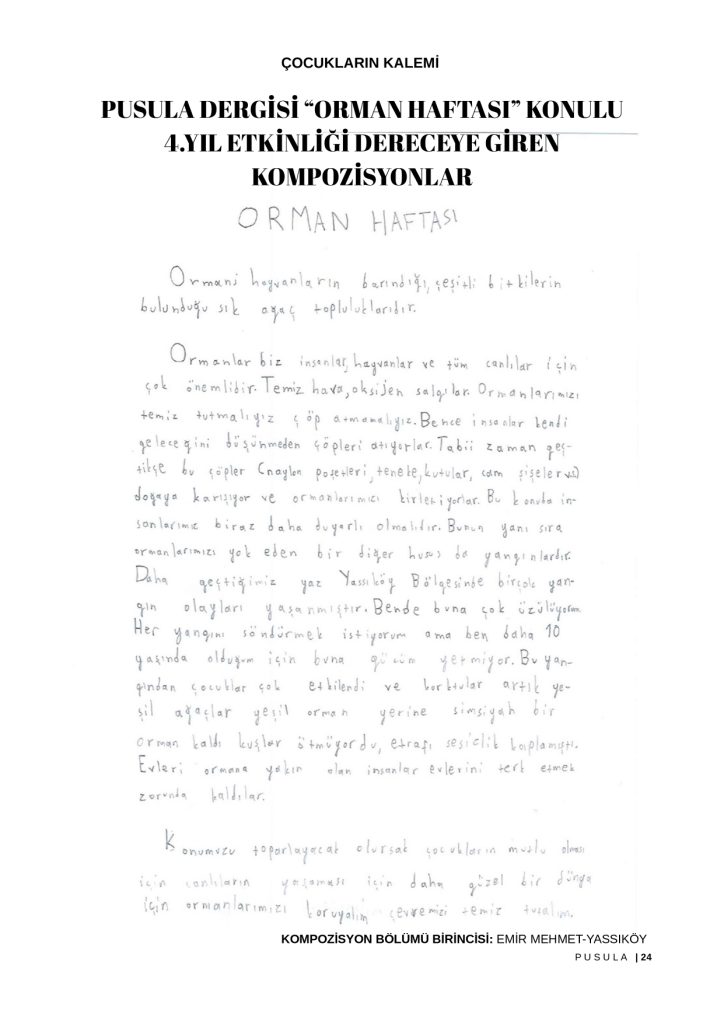 ÇOCUKLARIN KALEMİ
PUSULA DERGİSİ “ORMAN HAFTASI” KONULU
4.YIL ETKİNLİĞİ DERECEYE GİREN
KOMPOZİSYONLAR
ORMAN HAFTASI
Ormani hayvanların barındığı, çeşitli bitkilerin
bulunduğu sık ağaç topluluklarıdır.
Ormanlar biz insanlar, hayvanlar ve tüm canlılar için
çok önemlidir. Temiz hava, oksijen salgılar. Ormanlarımızı
temiz tutmalıyız çöp atmamalıyız. Bence insanlar kendi
geleceğini düşünmeden çöpleri atıyorlar. Tabii zaman geç-
tikçe bu çöpler (naylon poşetleri, teneke, kutular, cam şişeler vs)
doğaya karışıyor ve ormanlarımızı kirletiyorlar. Bu konuda in-
sanlarımız biraz daha duyarlı olmalıdır. Bunun yanı sıra
ormanlarımızı yok eden bir diğer husus da yangınlardır.
Daha geçtiğimiz yaz Yassıköy Bölgesinde birçok yan-
gın olayları yaşanmıştır. Bende buna çok üzülüyorum.
Her yangını söndürmek istiyorum ama ben daha 10
yaşında olduğum için buna gücüm yetmiyor. Bu yan-
gından çocuklar çok etkilendi ve korktular artık ye-
şil ağaçlar yeşil orman yerine simsiyah bir
orman kaldı kuşlar ötmüyordu, etrafı sessizlik kaplamıştı.
Evleri ormana yakın olan insanlar evlerini terk etmek
zorunda kaldılar.
Konumuzu toparlayacak olursak çocukların mutlu olması
için canlıların yaşaması için daha güzel bir dünya
için ormanlarımızı koruyalım çevremizi temiz tutalım.
KOMPOZİSYON BÖLÜMÜ BİRİNCİSİ: EMİR MEHMET-YASSIKÖY
PUSULA | 24